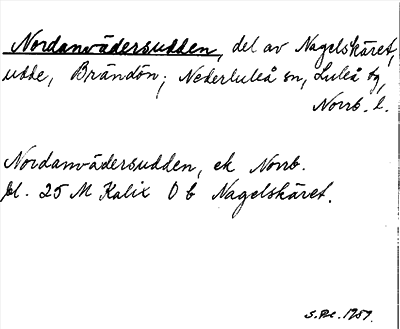 Nordanvädersudden, del av Nagelskäret,
udde, Brändön; Nederluleå sn, Luleå tg,
Norrb. l.
Nordanvädersudden, ek Norrb.
bl. 25 M Kalix O b Nagelskäret.